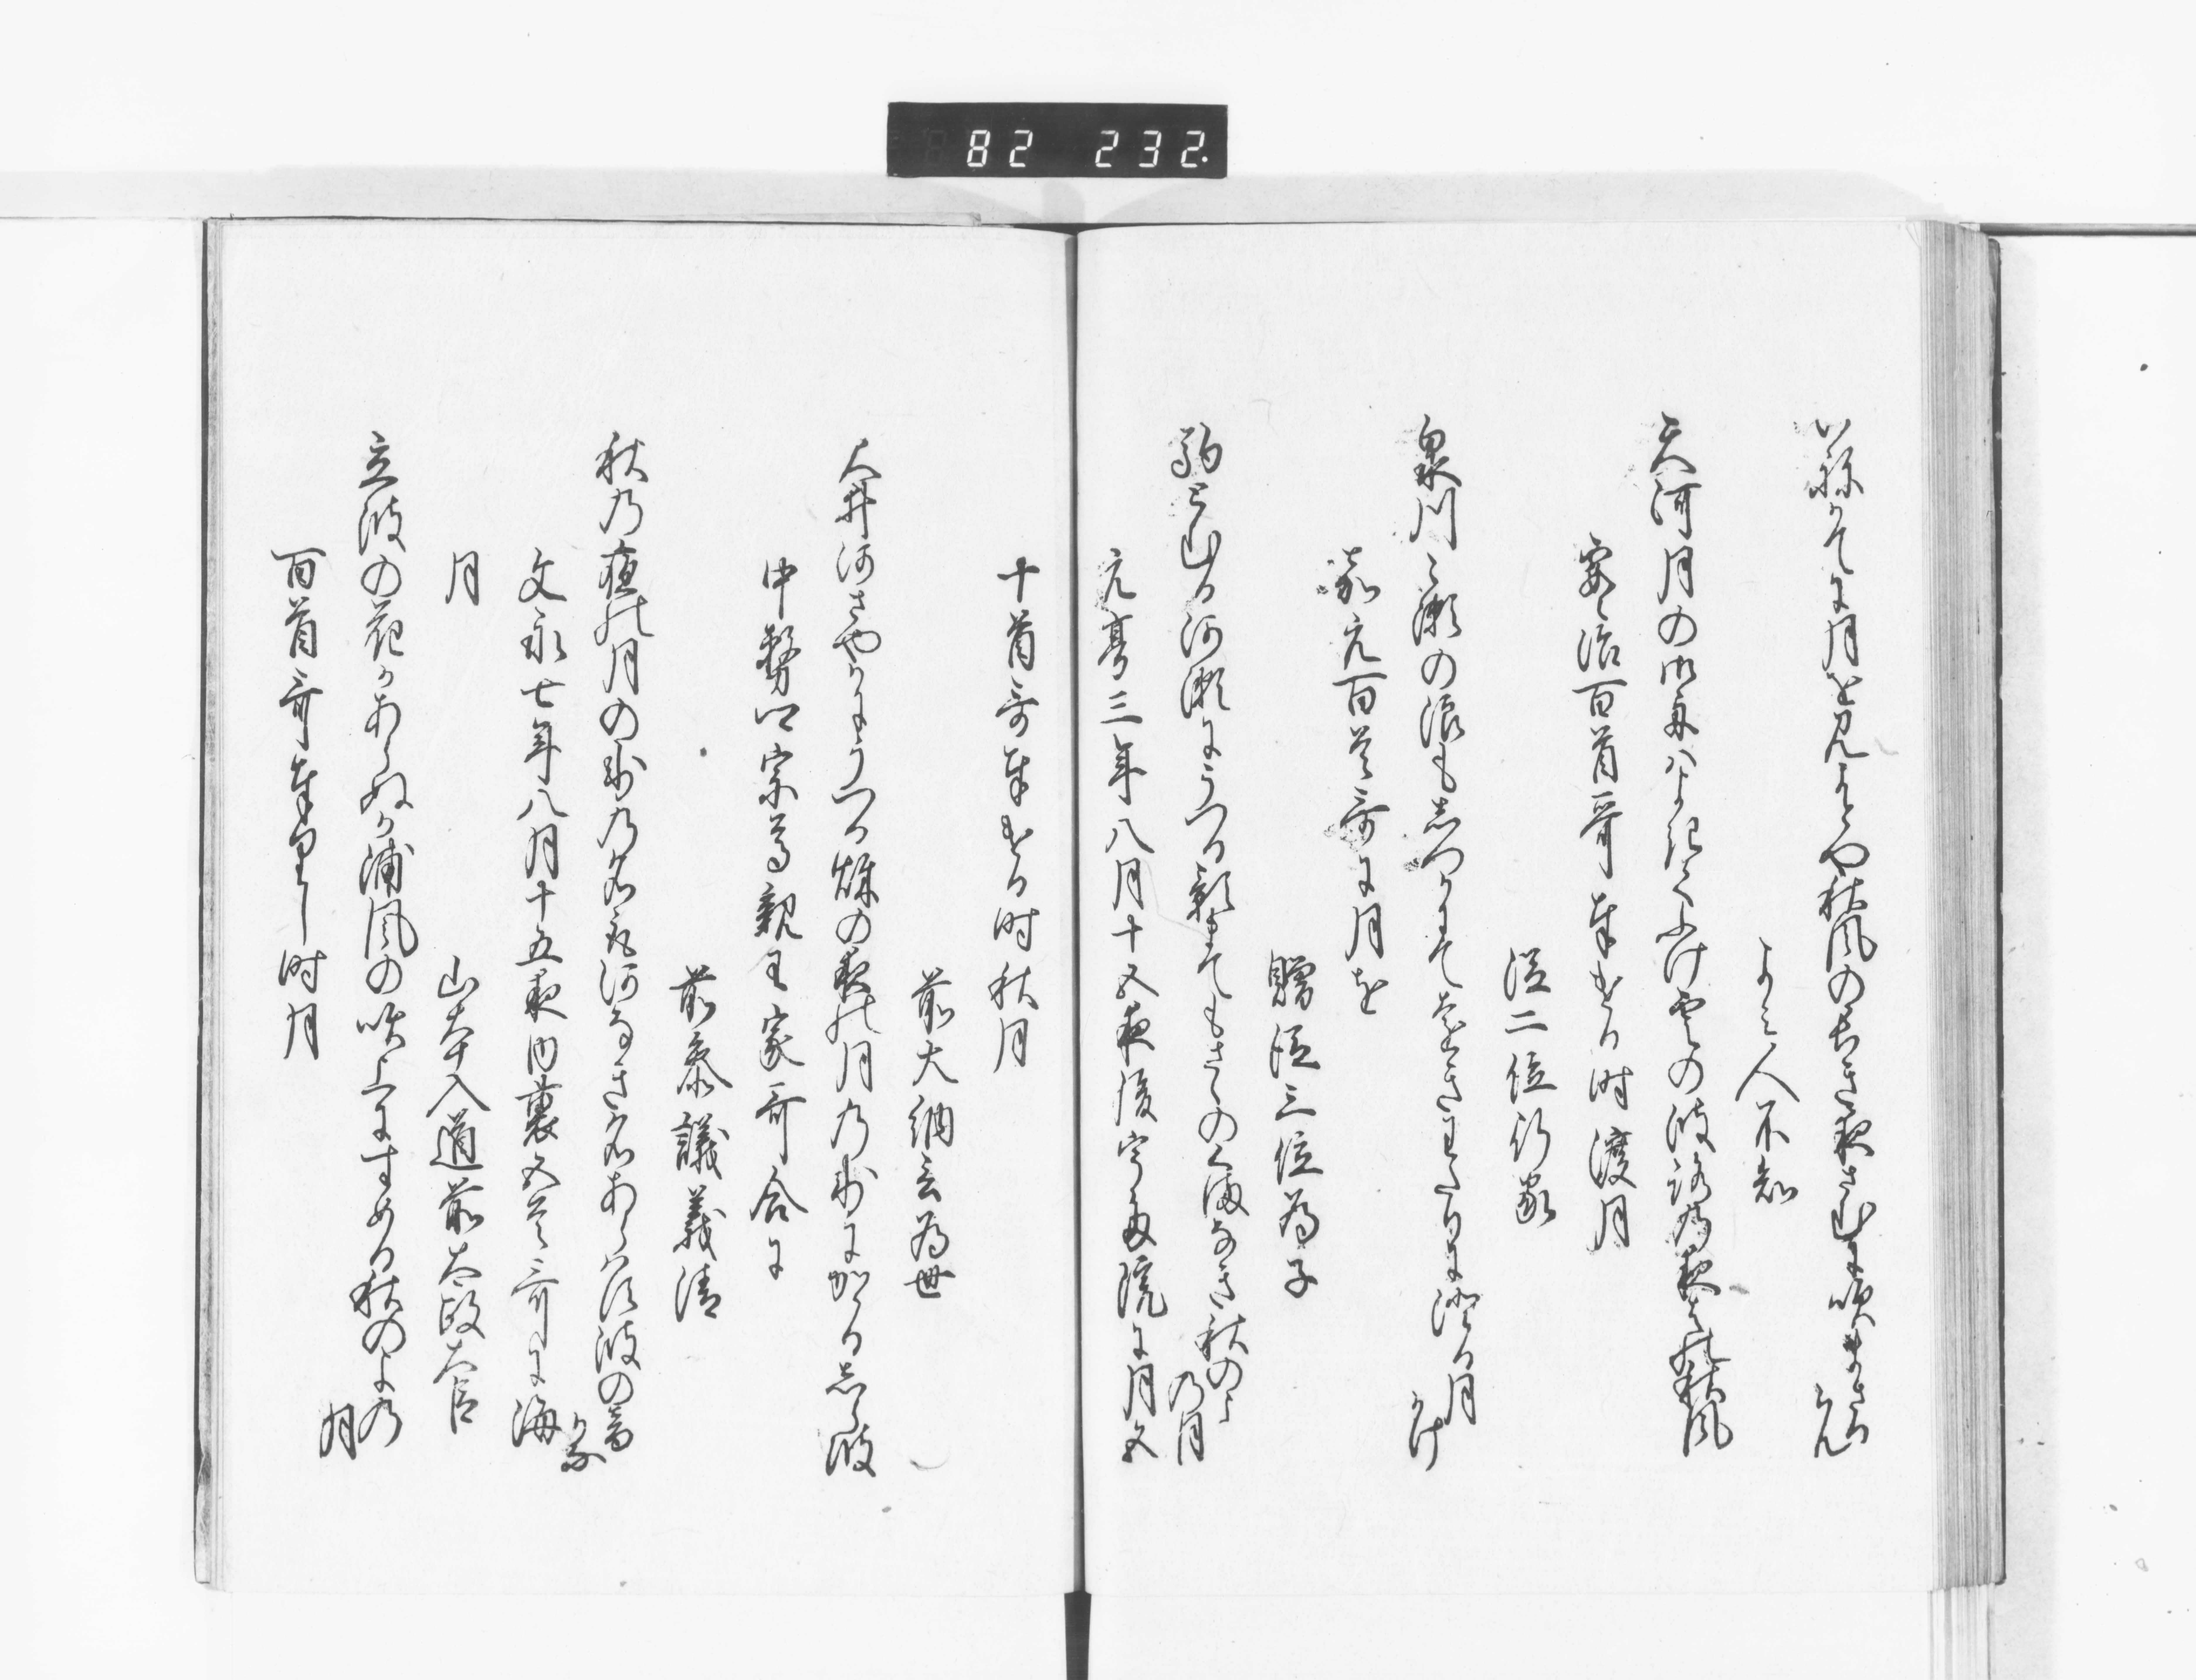 82 232.
いねかてに月を見よとや秋風のなかき夜さむに吹まさるらん
よみ人不知
天河月のみふねはよきにふけ雲の波路の夜はの秋風
宝治百首哥奉ける時渡月
従二位行家
泉川こ瀬の浪もしつかにて
嘉元百首哥に月を
贈従三位為子
駒とめ山河瀬にうつる影まてもさらのくまなき秋のよの月
元亨三年八月十五夜後宇多院に月五
十首哥奉ける時秋月
前大納言為世
大井河さやかにうつる秋の夜の月の影に加へるしら波
中務卿宗尊親王家哥合に
前参議義清
秋の夜の月の影の名取河なき名あらはす波の音かな
文永七年八月十五夜内裏五首哥に海
月
山本入道前太政大臣
立波の花かあらぬか浦風の吹上にすめる秋のよの月
百首哥奉りし時月